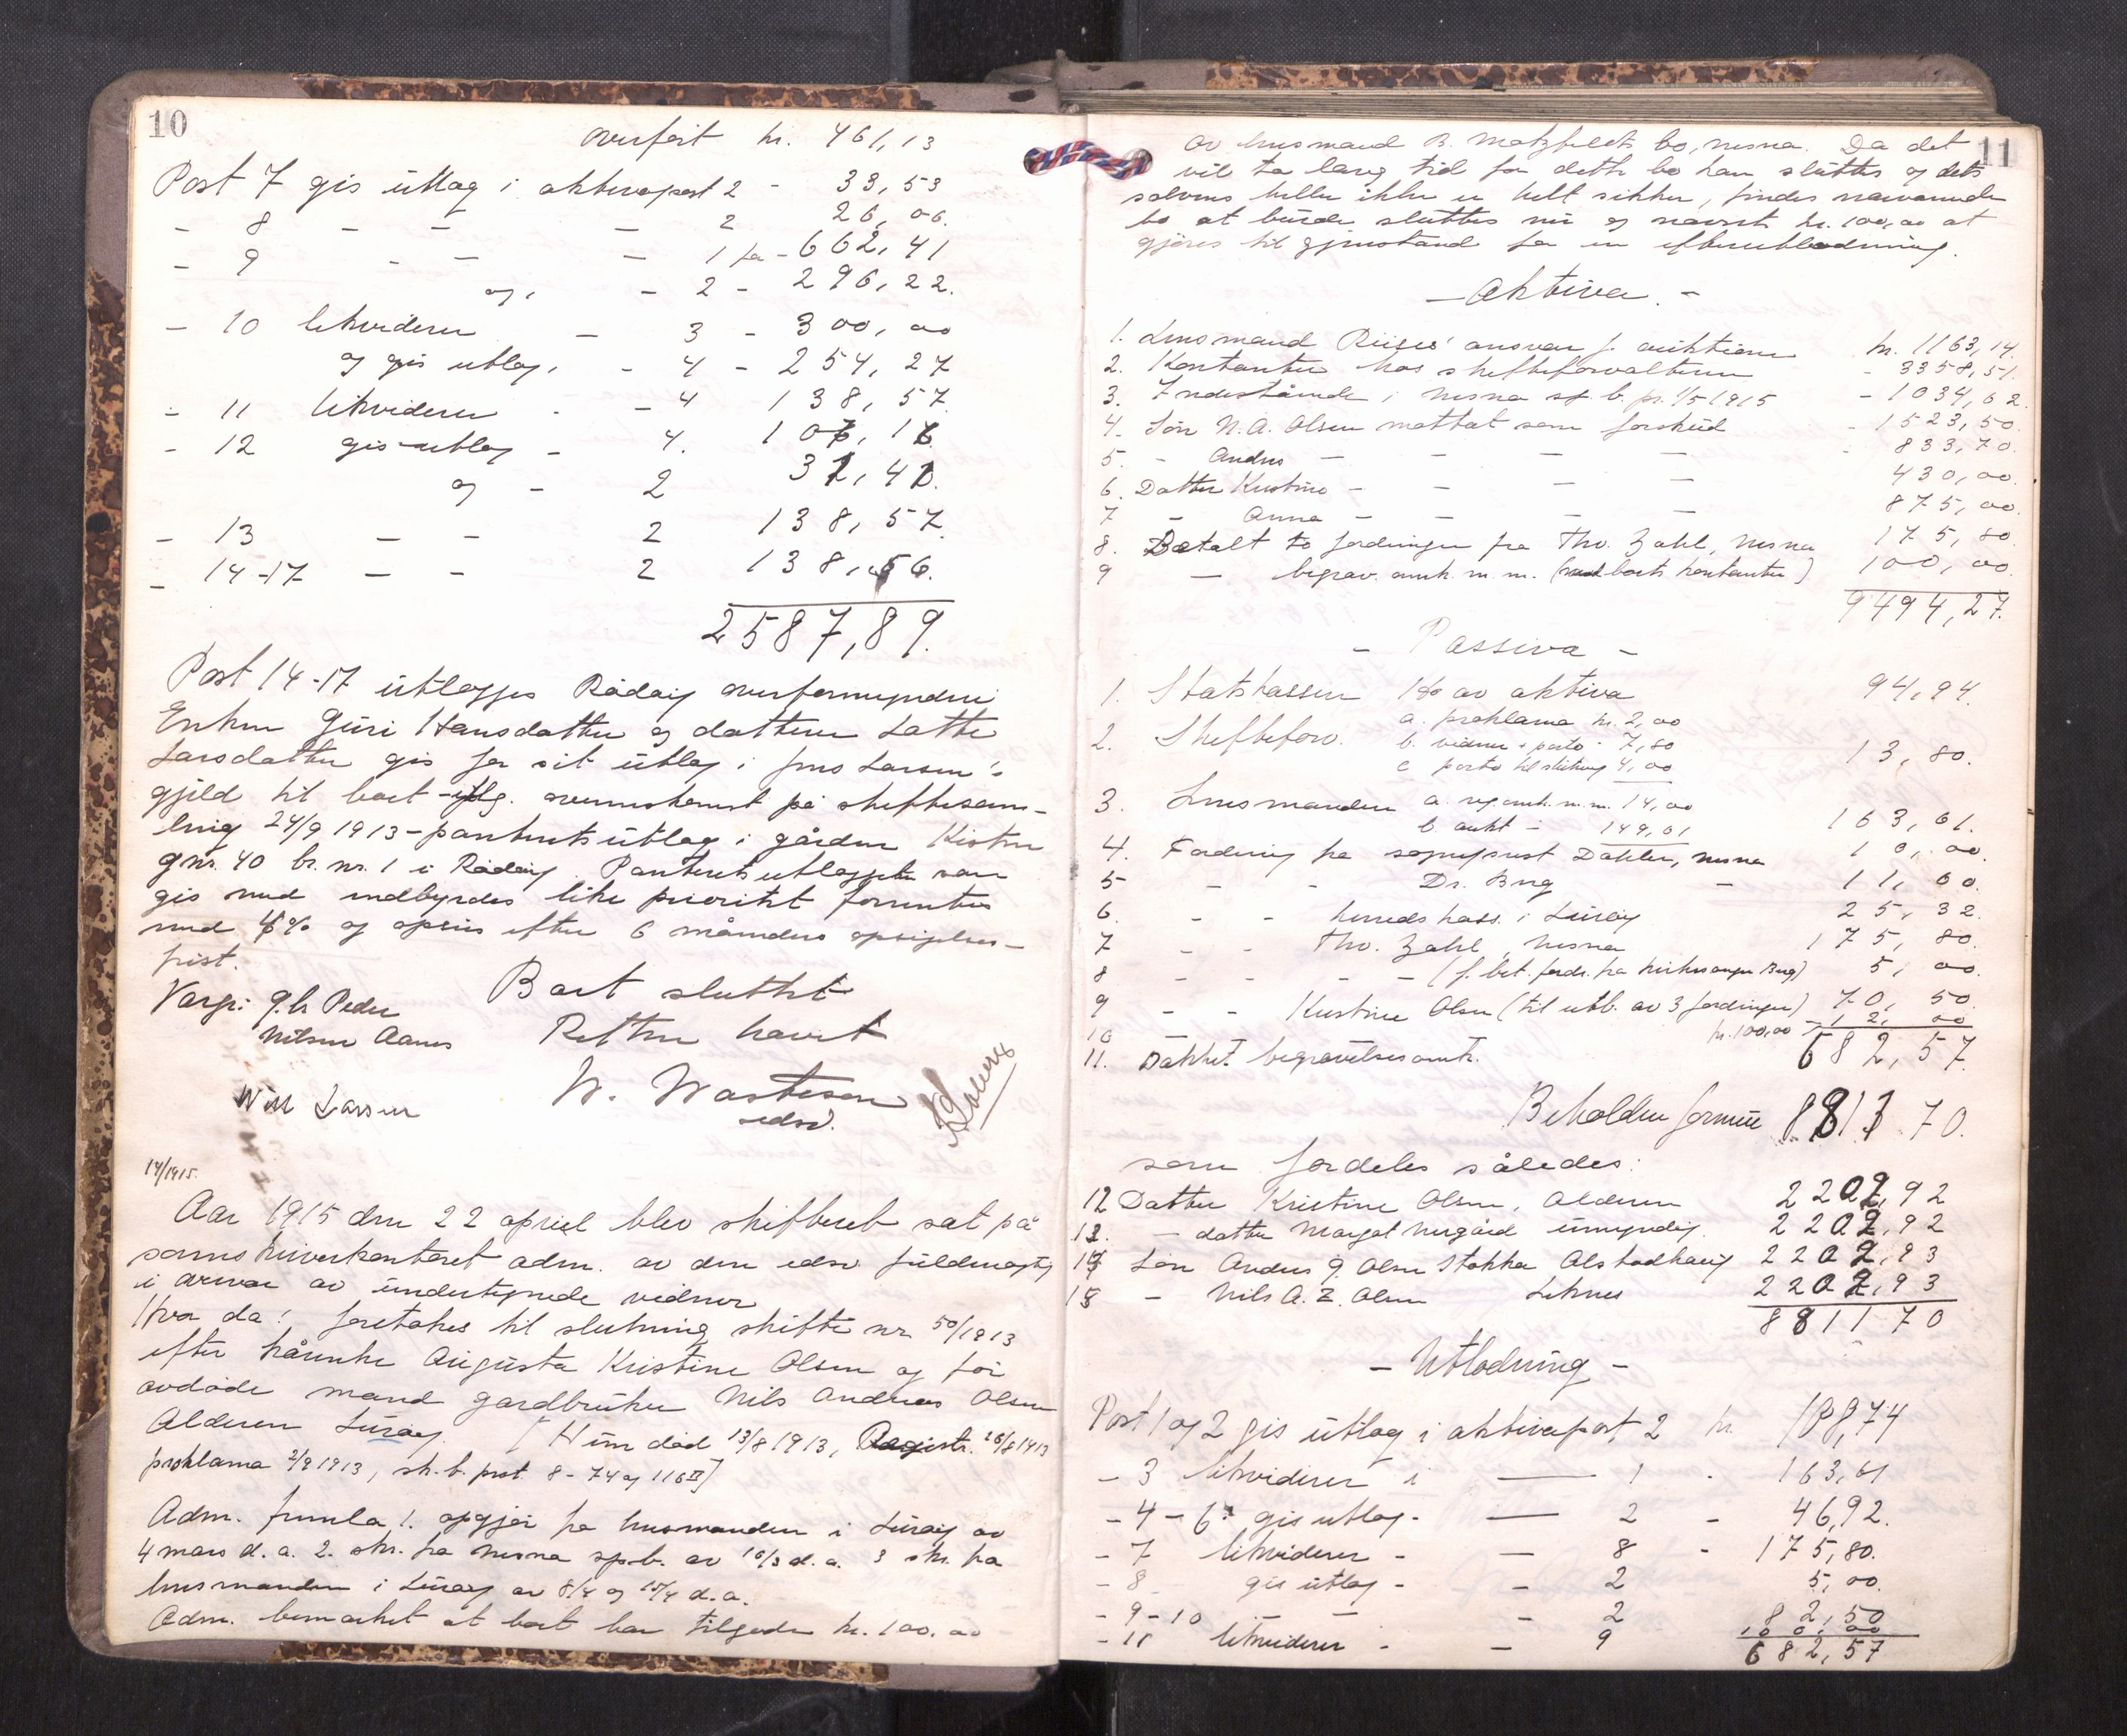 10
overført kr. 461,13
Post 7 gis utlæg i aktivapost 2 - 33,53
- 8 - - - 2 26,06.
- 9 - - - 1 fra - 662,41
og, - 2 - 296,22.
- 10 likviderer - 3 - 300,00
og gis utlæg, - 4 - 254,27
- 11 likviderer - - 4 138,57
- 12 gis utlæg - 4. 107,16
og - 2 31,41.
- 13 - - 2 138,57.
- 14-17 - - 2 138,56.
2587,89.
Post 14-17 utlægges Rødøy overformynderi
Enken Guri Hansdatter og datteren Latte
Larsdatter gis for sit utlæg i Jens Larsen's
gjæld til boet - overenskomst på skiftesam-
ling 24/9 1913 - panteretsutlæg i gården Kistna
gnr. 40 br. nr. 1 i Rødøy. Panteretsutlæggene
gis med indbyrdes like prioritet forrentes
med 4% og opsies efter 6 måneders opsigelses-
frist.
Boet sluttet
Retten hævet
Peder
Nilsen Aanes
W. Wastesen
edsv.
Will Larsen
14/1915.
Aar 1915 den 22 april blev skifteret sat på
sorenskriverkontoret adm. av den edsv. fuldmægtig
i nærvær av undertegnede vidner
Hva da: foretakes til slutning skifte nr 50/1913
efter kårenke Augusta Kristine Olsen og før
avdøde mand gardbruker Nils Andreas Olsen
Alderen Lurøy. [Hun død 13/8 1913, Registr. 26/8 1913
proklama 2/9 1913, sk.b. prot. 8 - 74 og 116 II]
Adm. fremla 1. opgjør fra lensmanden i Lurøy av
4 mars d.a. 2. skr. fra Nesna spb. av 16/3 d.a. 3 skr. fra
lensmanden i Lurøy av 8/4 og 15/4 d.a.
Adm. bemerket at boet har tilgode kr. 100.00
11
av lensmand B. Motzfeldts bo, Nesna. Da det
vil ta lang tid før dette bo kan sluttes og dets
solvens heller ikke er helt sikker, findes nærværende
bo at burde sluttes nu og nævnte kr. 100,00 at
gjøres til gjenstand for en efterutlodning.
- Aktiva. -
1. Lensmand Riises' ansvar f. auktionen kr. 1163,14.
2. Kontanter hos skifteforvalteren - 3358,51.
3. Indestående i Nesna sp.b. pr. 1/5 1915 - 1034,62.
4. Søn N.A. Olsen mottat som forskud - 1523,50.
5. - Anders - - - - 833,70.
6. Datter Kristine - - - - 430,00.
7 - Anna - - - - 875,00.
8. Betalt to fordringer fra Tho. Zahl, Nesna 175,80.
9 - begrav. omk. m.m. (med boets kontanter) 100,00.
9494,27.
- Passiva -
1. Statskassen 1% av aktiva 94,94.
2. Skifteforv. a. proklama kr. 2,00
b. vidner + porto - 7,80
c porto til slutning 4,00 13,80.
3. Lensmanden a. reg.omk. m.m. 14,00
b aukt - 149,61 163,61.
4. Fordring fra sogneprest Dahler, Nesna 10,00.
5 - - Dr. Berg - 11,60.
6. - - herredskass. i Lurøy 25,32.
7 - - Tho. Zahl, Nesna 175,80.
8 - - - - (f. bet. fordr. fra kirkesanger Berg) 5,00.
9 - - Kristine Olsen (til utb. av 3 fordringer) 70,50
10 12,00
11. Dækket begravelsesomk. kr. 100,00
682,57.
Beholden formue 8811 70.
som fordeles således:
12 Datter Kristine Olsen, Alderen 2202,92
13. - datter Margot Nergård umyndig. 2202,92
14 Søn Anders J. Olsen Stokka Alstadhaug 2202,93
15 - Nils A. Z. Olsen Leknes 2202,93
8811 70
- Utlodning -
Post 1 og 2 gis utlæg i aktivapost 2 kr. 108,74
- 3 likviderer i — 1 - 163,61
- 4 - 6 gis utlæg - — 2 - 46,92.
- 7 likviderer - — 8 - 175,80.
- 8 gis utlæg - - 2 5,00.
- 9-10 - - - 2 82,50
- 11 likviderer - - 9 100,00
682,57